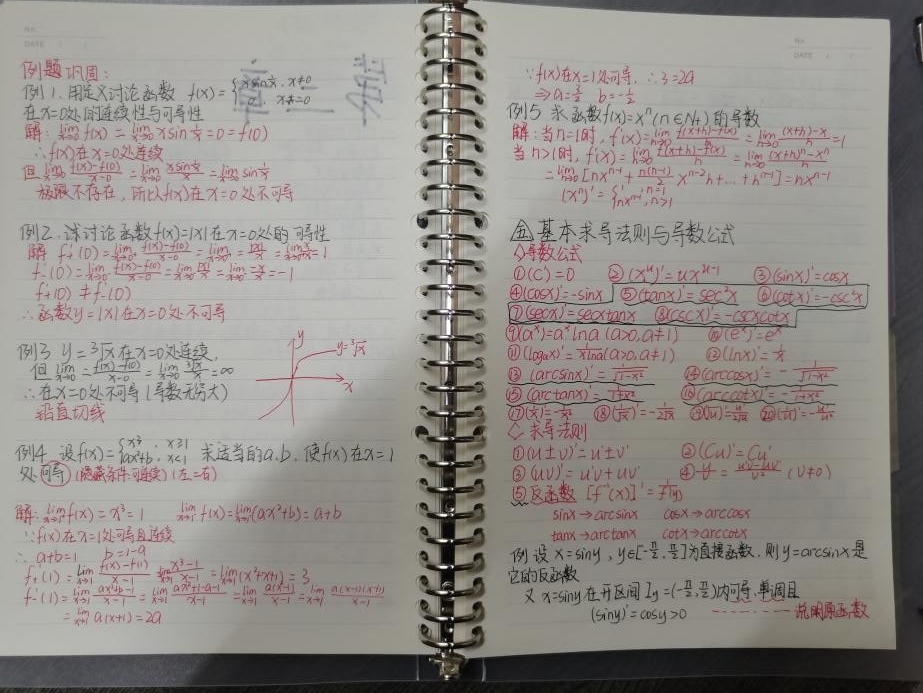 例题巩固:
例1. 用定义讨论函数 f(x)={xsin1/x, x≠0
x=0
在x=0处的连续性与可导性
解: lim x→0 f(x) = lim x→0 xsin 1/x = 0 = f(0)
∴f(x)在x=0处连续
但 lim x→0 f(x)-f(0)/x-0 = lim x→0 xsin1/x/x = lim x→0 sin1/x
极限不存在, 所以f(x)在x=0处不可导
例2. 试讨论函数f(x)=|x|在x=0处的可导性
解 f'+(0) = lim f(x)-f(0)/x-0 = lim |x|/x = lim x/x = 1
f'-(0) = lim f(x)-f(0)/x-0 = lim |x|/x = lim -x/x = -1
f'+(0) ≠ f'-(0)
∴函数y=|x|在x=0处不可导
例3 y=³√x在x=0处连续,
但 lim x→0 f(x)-f(0)/x-0 = lim x→0 ³√x/x = ∞
∴在x=0处不可导(导数无穷大)
铅直切线
y
y=³√x
x
例4. 设f(x)={x³, x≥1
ax²+b, x<1
求适当的a.b, 使f(x)在x=1
处可导 (隐藏条件:可连续) (左=右)
解: lim f(x) = x³ = 1 lim f(x) = lim (ax²+b) = a+b
∵f(x)在x=1处可导且连续
∴ a+b=1 b=1-a
f'+(1) = lim x→1 f(x)-f(1)/x-1 = lim x³-1/x-1 = lim x→1 (x²+x+1) = 3
f'-(1) = lim ax²+b-1/x-1 = lim ax²+1-a-1/x-1 = lim a(x²-1)/x-1 = lim a(x-1)(x+1)/x-1
= lim x→1 a(x+1) = 2a
∵f(x)在x=1处可导, ∴3=2a
⇒ a=3/2 b=-1/2
例5 求函数f(x)=xⁿ(n∈N+)的导数
解: 当n=1时, f'(x) = lim h→0 f(x+h)-f(x)/h = lim h→0 (x+h)-x/h = 1
当n>1时, f'(x) = lim h→0 f(x+h)-f(x)/h = lim h→0 (x+h)ⁿ-xⁿ/h
= lim h→0 [nxⁿ⁻¹ + n(n-1)/2 xⁿ⁻²h + ... + hⁿ⁻¹] = nxⁿ⁻¹
(xⁿ)' = {1, n=1
nxⁿ⁻¹, n>1
基本求导法则与导数公式
◇导数公式
①(C)'=0 ②(x^u)'=ux^(u-1) ③(sinx)'=cosx
④(cosx)'=-sinx ⑤(tanx)'=sec²x ⑥(cotx)'=-csc²x
⑦(secx)'=secxtanx ⑧(cscx)'=-cscxcotx
⑨(aˣ)'=aˣlna (a>0, a≠1) ⑩(eˣ)'=eˣ
⑪(logₐx)'=1/xlna (a>0, a≠1) ⑫(lnx)'=1/x
⑬(arcsinx)'=1/√1-x² ⑭(arccosx)'=-1/√1-x²
⑮(arctanx)'=1/1+x² ⑯(arccotx)'=-1/1+x²
⑰(1/x)'=-1/x²
◇求导法则
①(u±v)'=u'±v' ②(Cu)'=Cu'
③(uv)'=u'v+uv' ④ u'v-uv'/v² (v≠0)
⑤反函数 [f⁻¹(x)]'=1/f'(y)
sinx→arcsinx cosx→arccosx
tanx→arctanx cotx→arccotx
例 设 x=siny, y∈[-π/2, π/2]为直接函数, 则y=arcsinx是
它的反函数
又 x=siny在开区间 Iy=(-π/2, π/2)内可导, 单调且
(siny)'=cosy>0 说明原函数